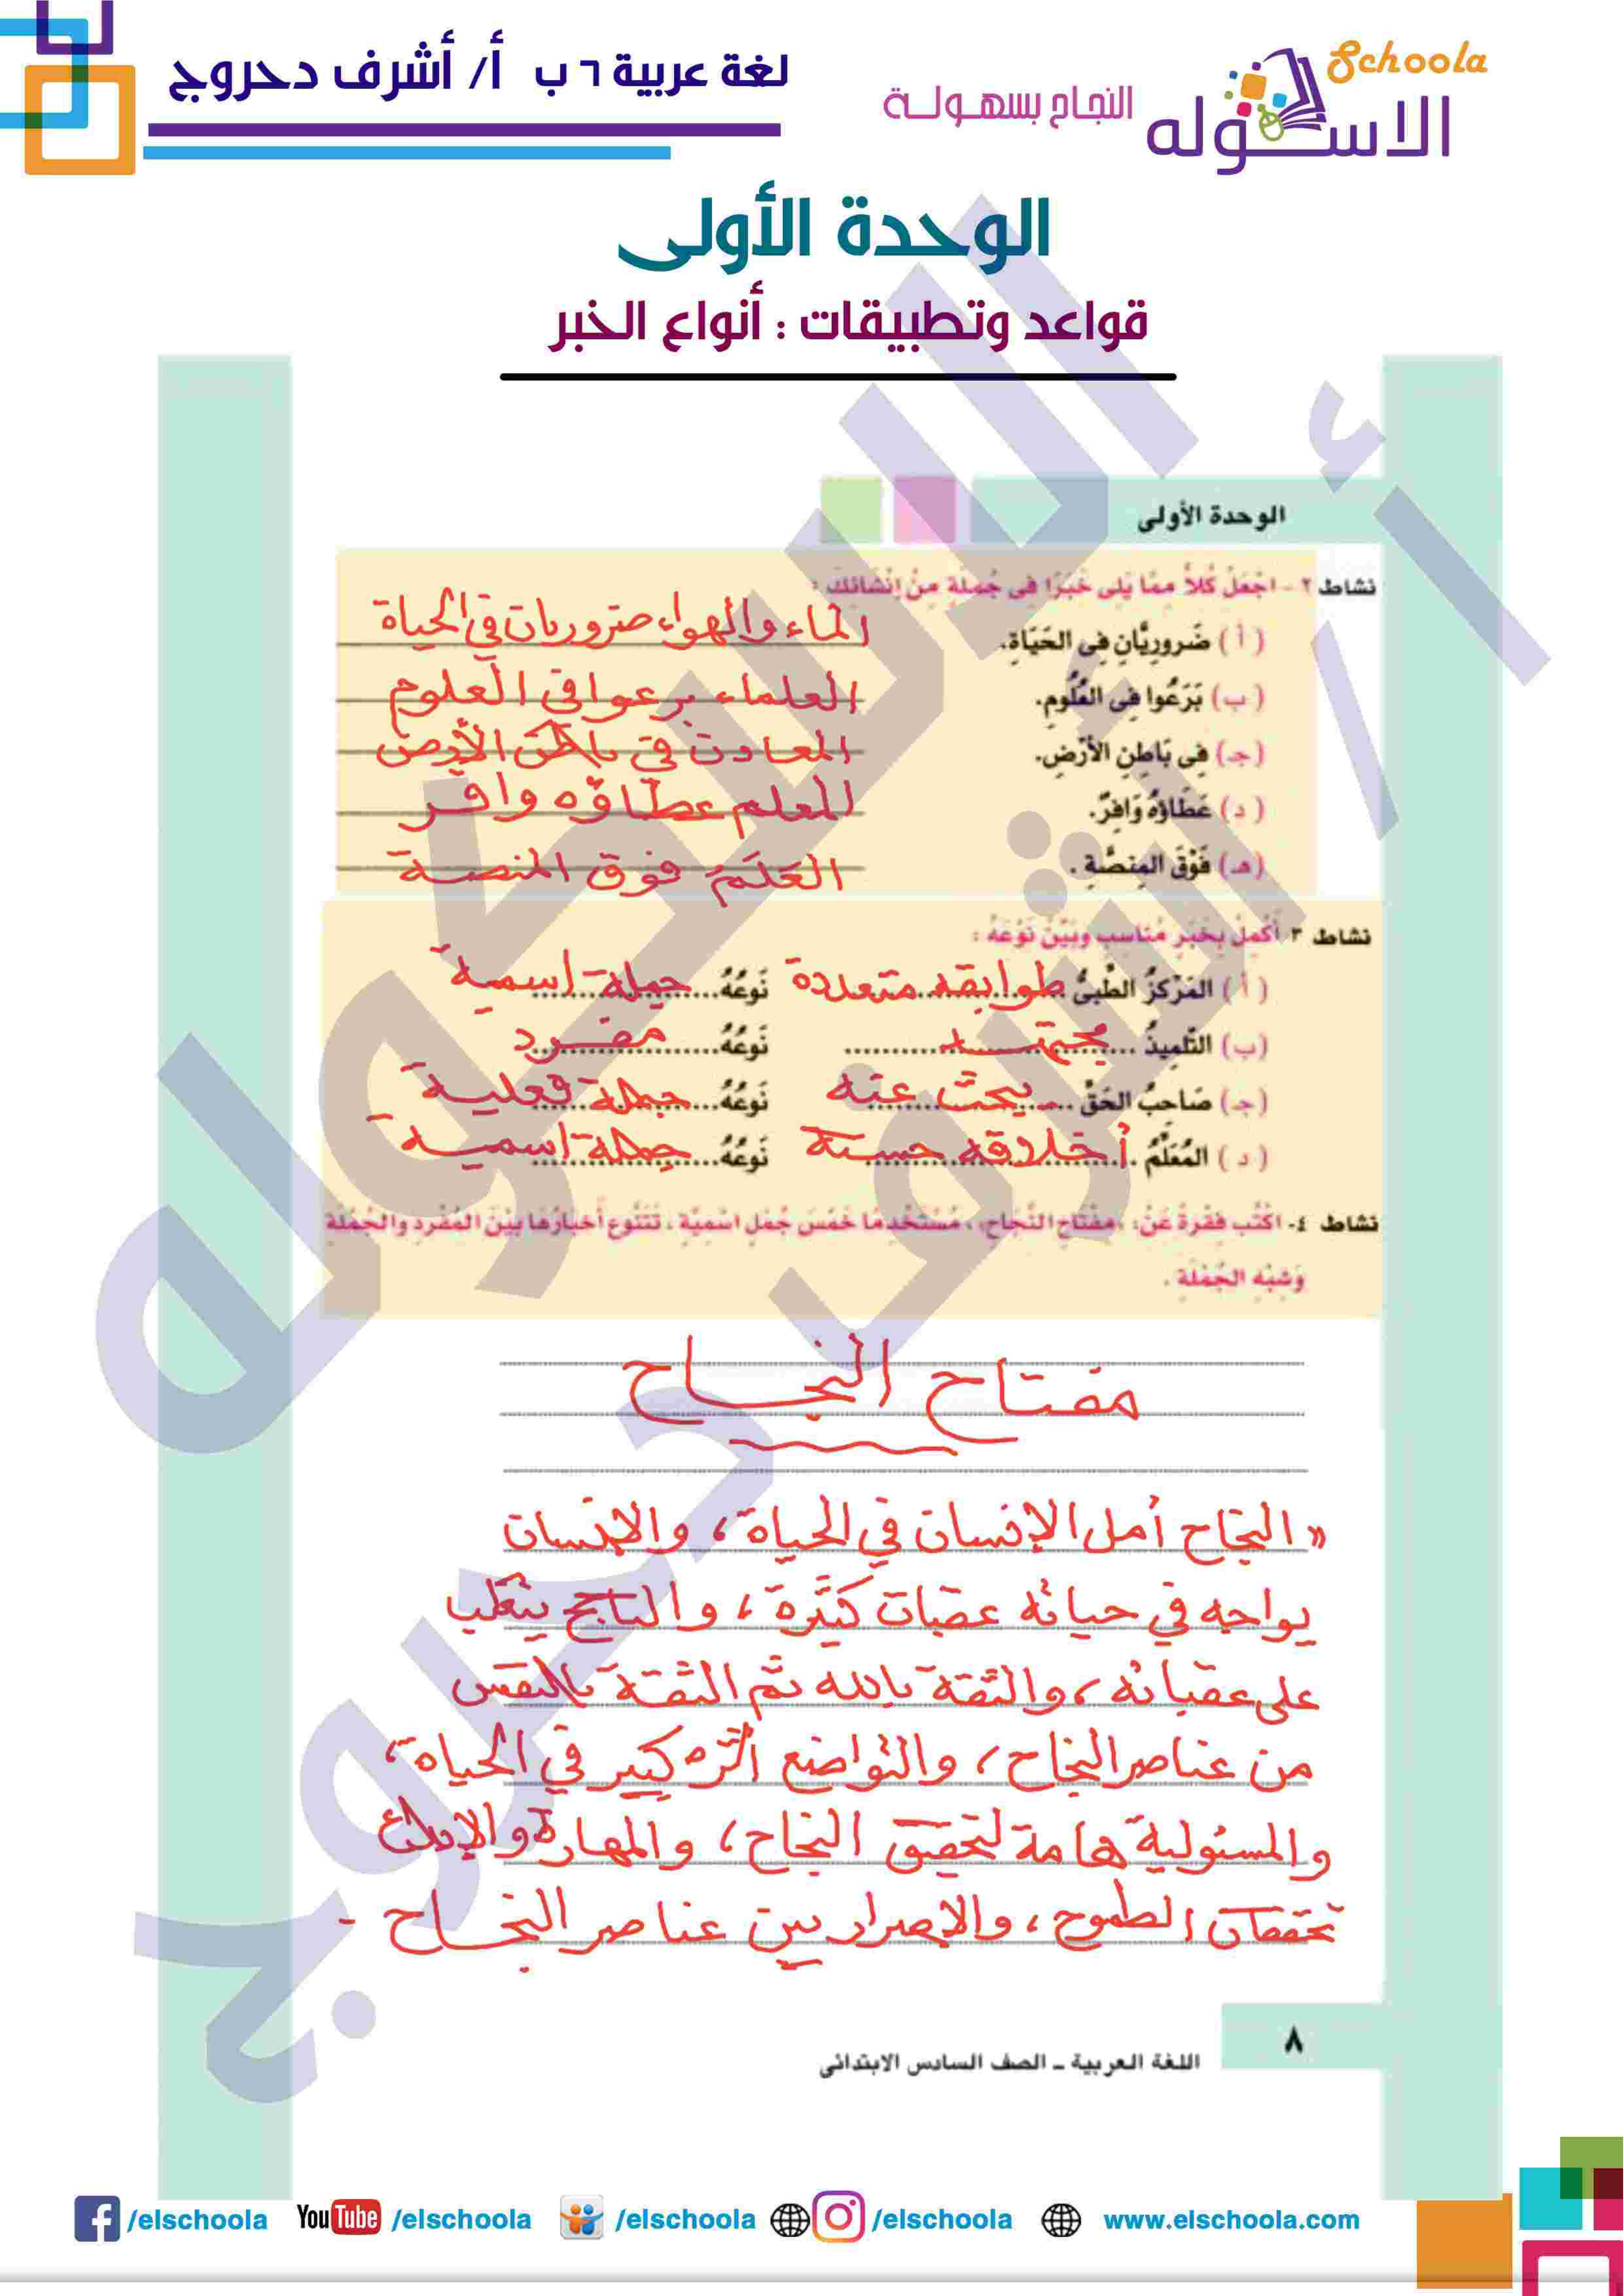 لغة عربية ٦ ب أ/ أشرف دحروج
Schoola
الاسكوله
النجاح بسهولة
الوحدة الأولى
قواعد وتطبيقات : أنواع الخبر
الوحدة الأولى
نشاط ٢ - اجْعَلْ كُلاً مِمَّا يَلِى خَبَرًا فِى جُمْلَةٍ مِنْ إنْشَائِكَ :
( أ ) ضَرورِيَّانِ فِى الحَيَاةِ. الماء والهواء ضروريان في الحياة
( ب ) بَرَعُوا فِى العُلُومِ. العلماء برعوا في العلوم
( جـ ) فِى بَاطِنِ الأَرْضِ. المعادن في باطن الأرض
( د ) عَطَاؤهُ وَافِرٌ. المعلم عطاؤه وافر
( هـ ) فَوْقَ المِنصَّةِ . العَلَمُ فوق المنصة
نشاط ٣ أَكْمِلْ بِخَبَرٍ مُنَاسِبٍ وبَيِّنْ نَوْعَهُ :
( أ ) المَرْكَزُ الطِّبىُّ طوابقه متعددة نَوْعُهُ جملة اسمية
( ب ) التِّلْمِيذُ مجتهد نَوْعُهُ مفرد
( جـ ) صَاحِبُ الحَقِّ يبحث عنه نَوْعُهُ جملة فعلية
( د ) المُعَلِّمُ أخلاقه حسنة نَوْعُهُ جملة اسمية
نشاط ٤- اكْتُب فِقْرةً عَنْ: «مِفْتَاحِ النَّجَاحِ»، مُسْتَخْدِمًا خَمْسَ جُمَلٍ اسْمِيَّةٍ ، تَتَنَّوع أَخبارُهَا بَيْنَ المُفْرَدِ والجُمْلَةِ
وَشِبْهِ الجُمْلَةِ .
مفتاح النجاح
« النجاح أمل الإنسان في الحياة ، والإنسان
يواجه في حياته عقبات كثيرة ، والناجح يتغلب
على عقباته ، والثقة بالله ثم الثقة بالنفس
من عناصر النجاح ، والتواضع أثره كبير في الحياة ،
والمسئولية هامة لتحقيق النجاح ، والمهارة والإبداع
تحققان الطموح ، والإصرار بين عناصر النجاح -
٨
اللغة العربية - الصف السادس الابتدائى
/elschoola YouTube /elschoola /elschoola /elschoola www.elschoola.com
أ / أشرف دحروج
الاسكوله